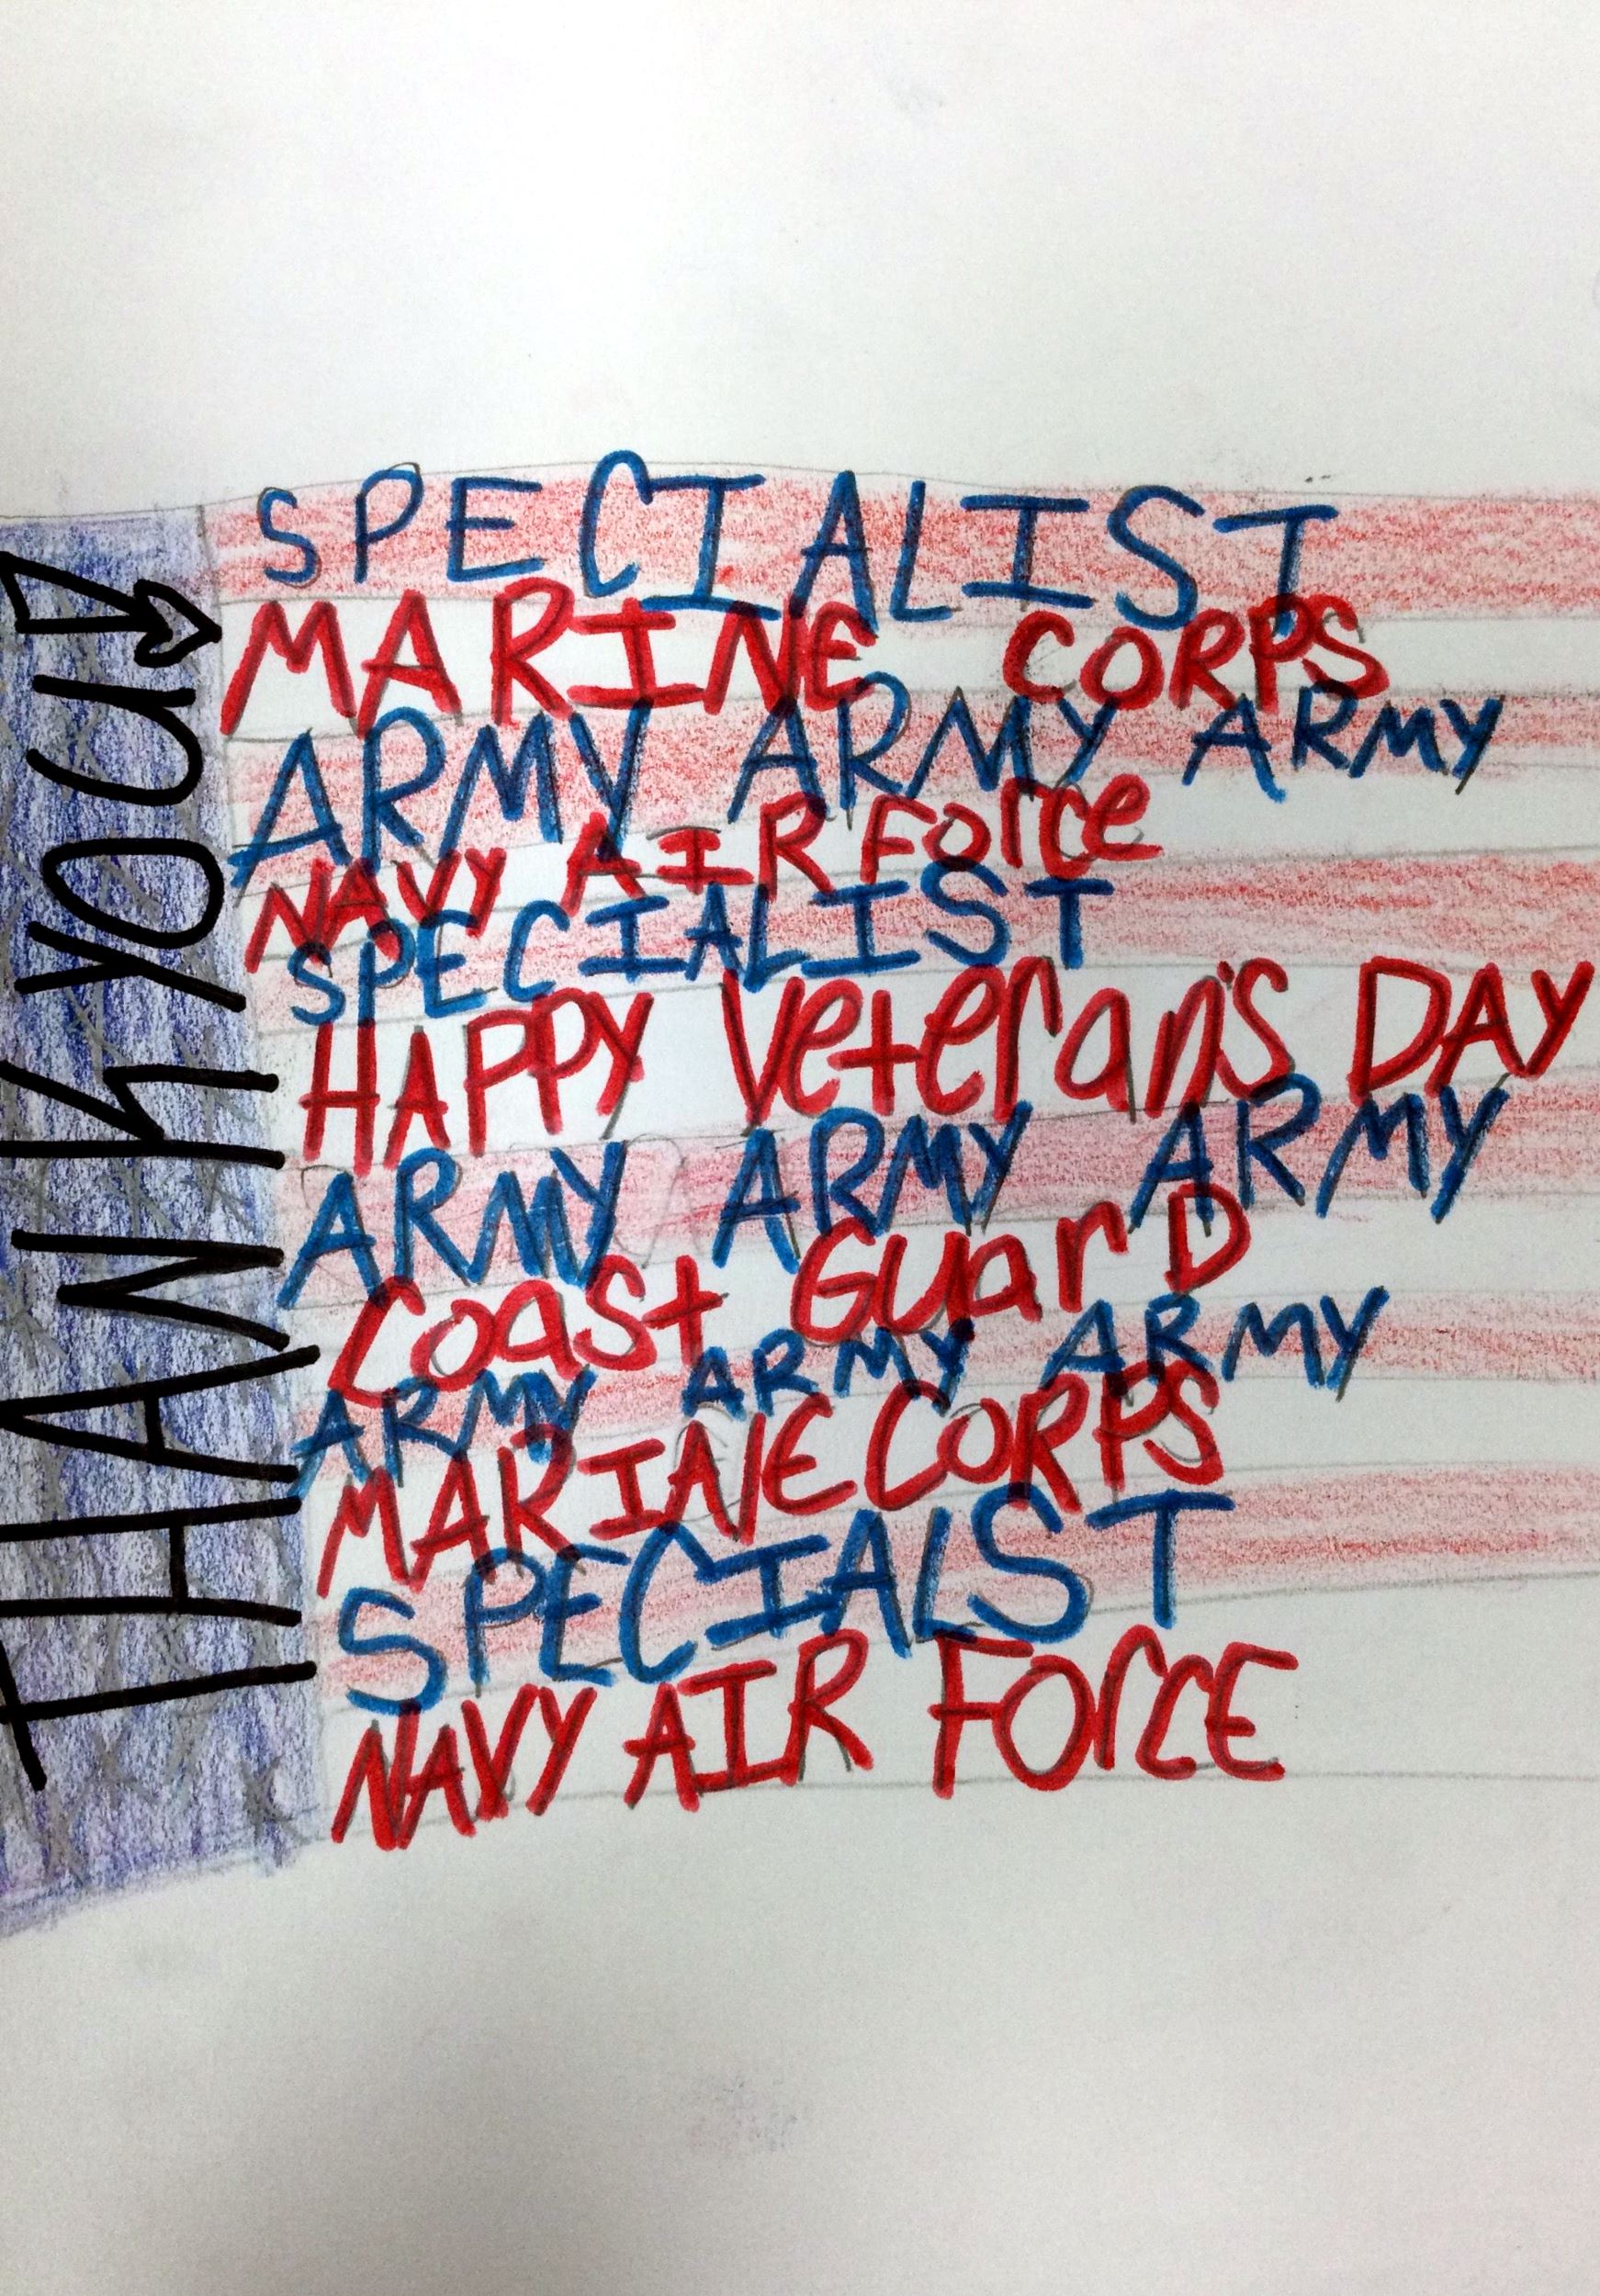 THANK YOU
SPECIALIST
MARINE CORPS
ARMY ARMY ARMY
NAVY AIR Force
SPECIALIST
HAPPY Veteran's DAY
ARMY ARMY ARMY
Coast GuarD
ARMY ARMY ARMY
MARINE CORPS
SPECIALST
NAVY AIR ForcE